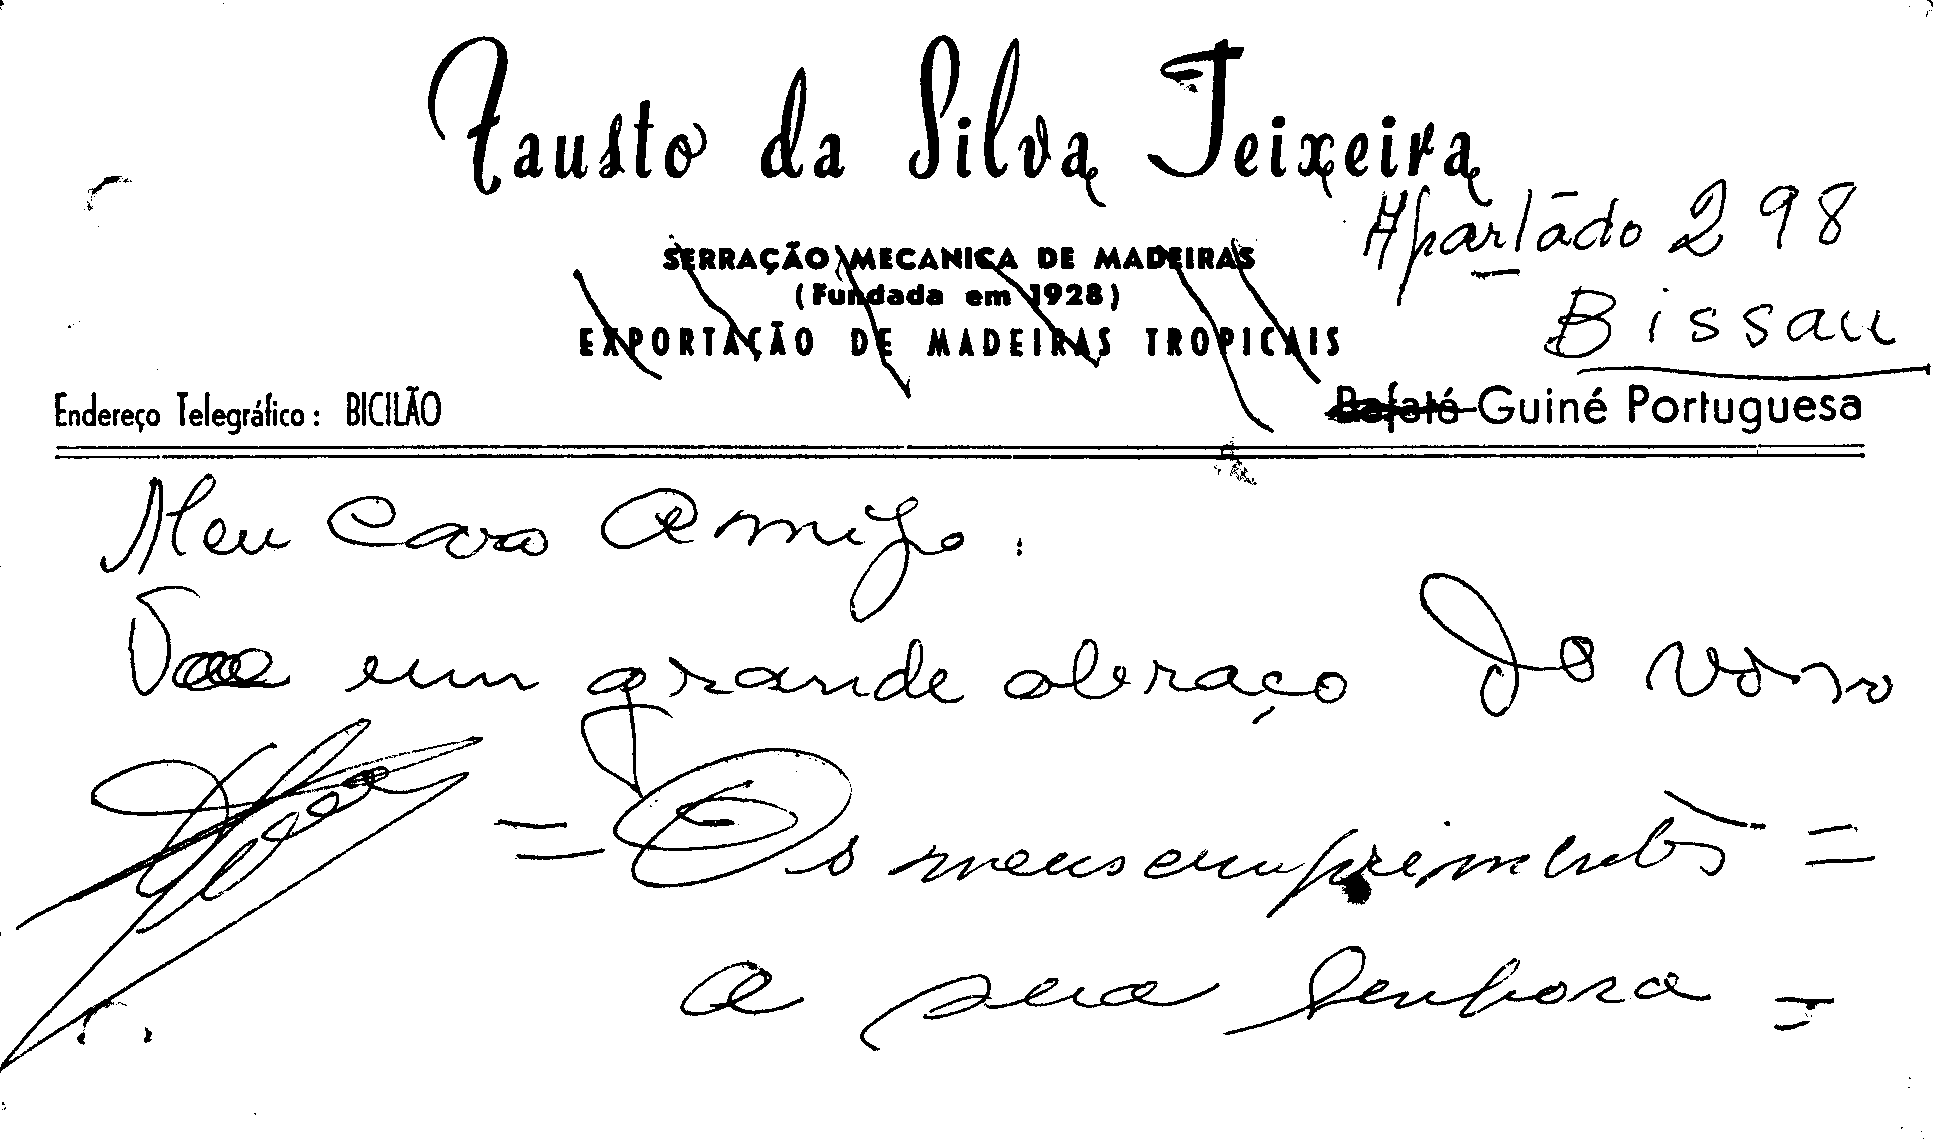 Fausto da Silva Teixeira
Apartado 298
SERRAÇÃO MECANICA DE MADEIRAS
(Fundada em 1928)
Bissau
EXPORTAÇÃO DE MADEIRAS TROPICAIS
Endereço Telegráfico: BICILÃO
Bafatá-Guiné Portuguesa
Meu Caro Amigo:
Vae um grande abraço do vosso
= Os meus cumprimentos =
a sua Senhora =